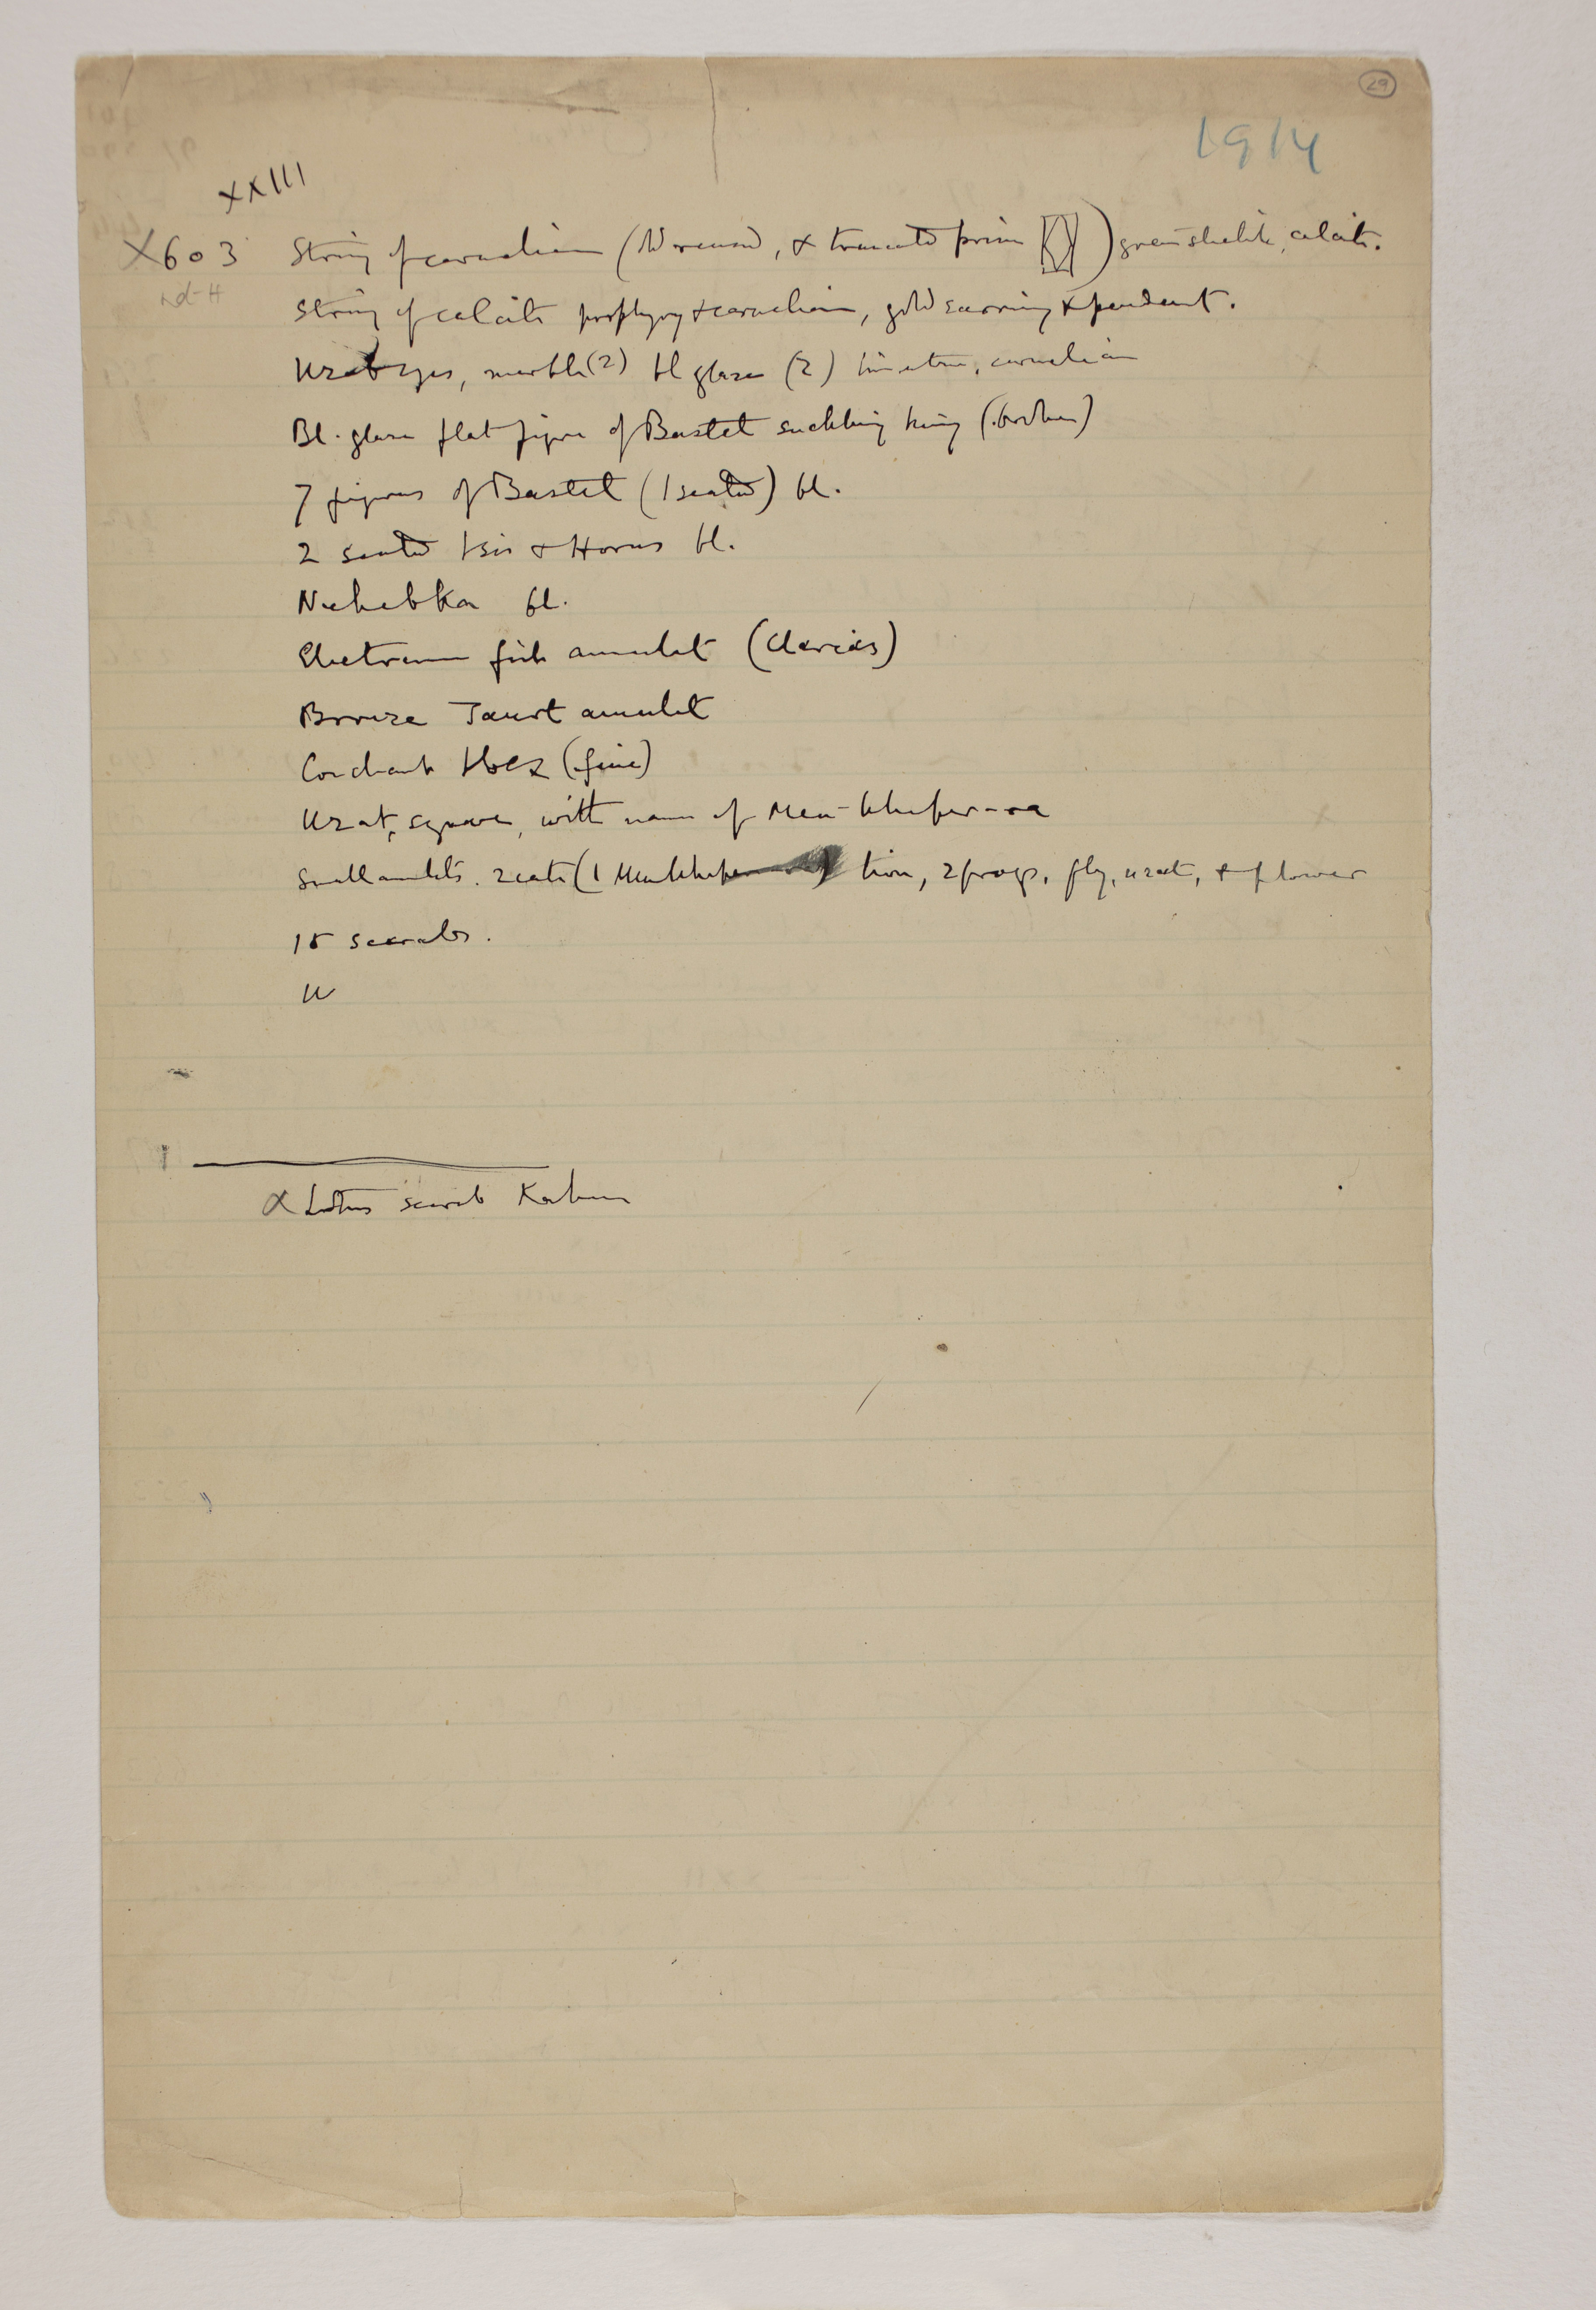 29
1914
XXIII
X603 String of carnelian ( , & truncated prism ) green steatite, calcite.
String of calcite porphyry & carnelian, gold earring & pendant.
Uzat eyes, marble (2) bl glaze (2) limestone, carnelian
Bl. glaze flat figure of Bastet suckling king (broken)
7 figures of Bastet (1 seated) bl.
2 seated Isis & Horus bl.
Nehebka bl.
Electrum fish amulet (Clarias)
Bronze Taurt amulet
Couchant (fine)
Uzat, square, with name of Men-kheper-ra
Small amulets. 2 cats (1 Menkheper ) lion, 2 frogs, fly, uzat, & flower
15 scarabs.
U
X Lotus scarab Kahun